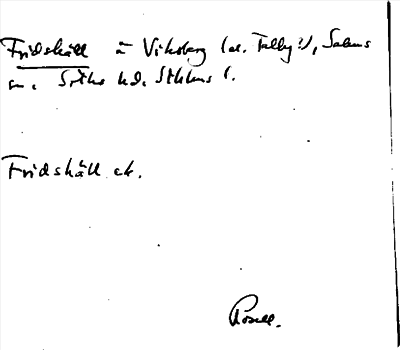 Fridshäll u Viksberg (el. Tellby?), Salems
sn, Svartlösa hd, Sthlms l.
Fridshäll ek.
Rosell.